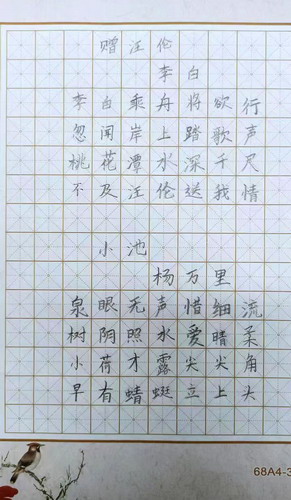 赠汪伦
李白
李白乘舟将欲行
忽闻岸上踏歌声
桃花潭水深千尺
不及汪伦送我情
小池
杨万里
泉眼无声惜细流
树阴照水爱晴柔
小荷才露尖尖角
早有蜻蜓立上头
68A4-3